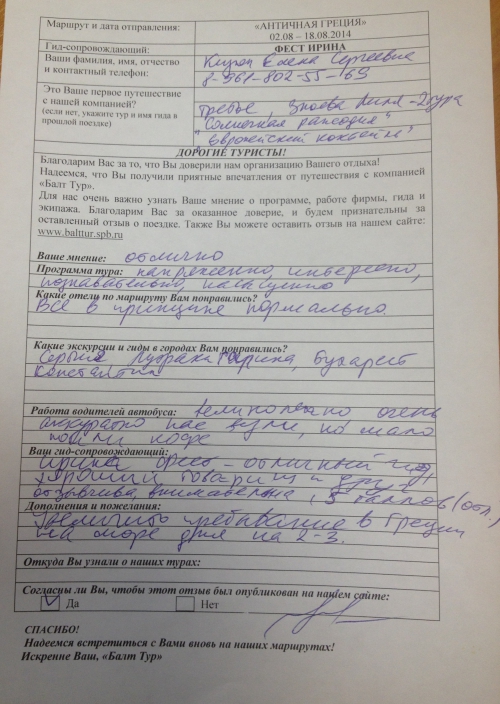 Маршрут и дата отправления: «АНТИЧНАЯ ГРЕЦИЯ»
02.08 – 18.08.2014
Гид-сопровождающий: ФЕСТ ИРИНА
Ваши фамилия, имя, отчество Елена Сергеевна
и контактный телефон: 8-961-802-55-169
Это Ваше первое путешествие
с нашей компанией? третье,
(если нет, укажите тур и имя гида в "Солнечная рапсодия"
прошлой поездке) "Европейский коктейль"
ДОРОГИЕ ТУРИСТЫ!
Благодарим Вас за то, что Вы доверили нам организацию Вашего отдыха!
Надеемся, что Вы получили приятные впечатления от путешествия с компанией
«Балт Тур».
Для нас очень важно узнать Ваше мнение о программе, работе фирмы, гида и
экипажа. Благодарим Вас за оказанное доверие, и будем признательны за
оставленный отзыв о поездке. Также Вы можете оставить отзыв на нашем сайте:
www.balttur.spb.ru
Ваше мнение: отлично
Программа тура: напряженно, интересно,
познавательно, насыщенно
Какие отели по маршруту Вам понравились?
Все в принципе нормально.
Какие экскурсии и гиды в городах Вам понравились?
Сербия Марина, Бухарест
Константин
Работа водителей автобуса: великолепно очень
аккуратно нас везли, но мало
поили кофе
Ваш гид-сопровождающий:
Ирина Фест – отличный гид,
хороший товарищ и друг
отзывчива, внимательна, 5 баллов (отл.)
Дополнения и пожелания:
Увеличить пребывание в Греции
на море дня на 2-3.
Откуда Вы узнали о наших турах:
Согласны ли Вы, чтобы этот отзыв был опубликован на нашем сайте:
Да Нет
СПАСИБО!
Надеемся встретиться с Вами вновь на наших маршрутах!
Искренне Ваш, «Балт Тур»